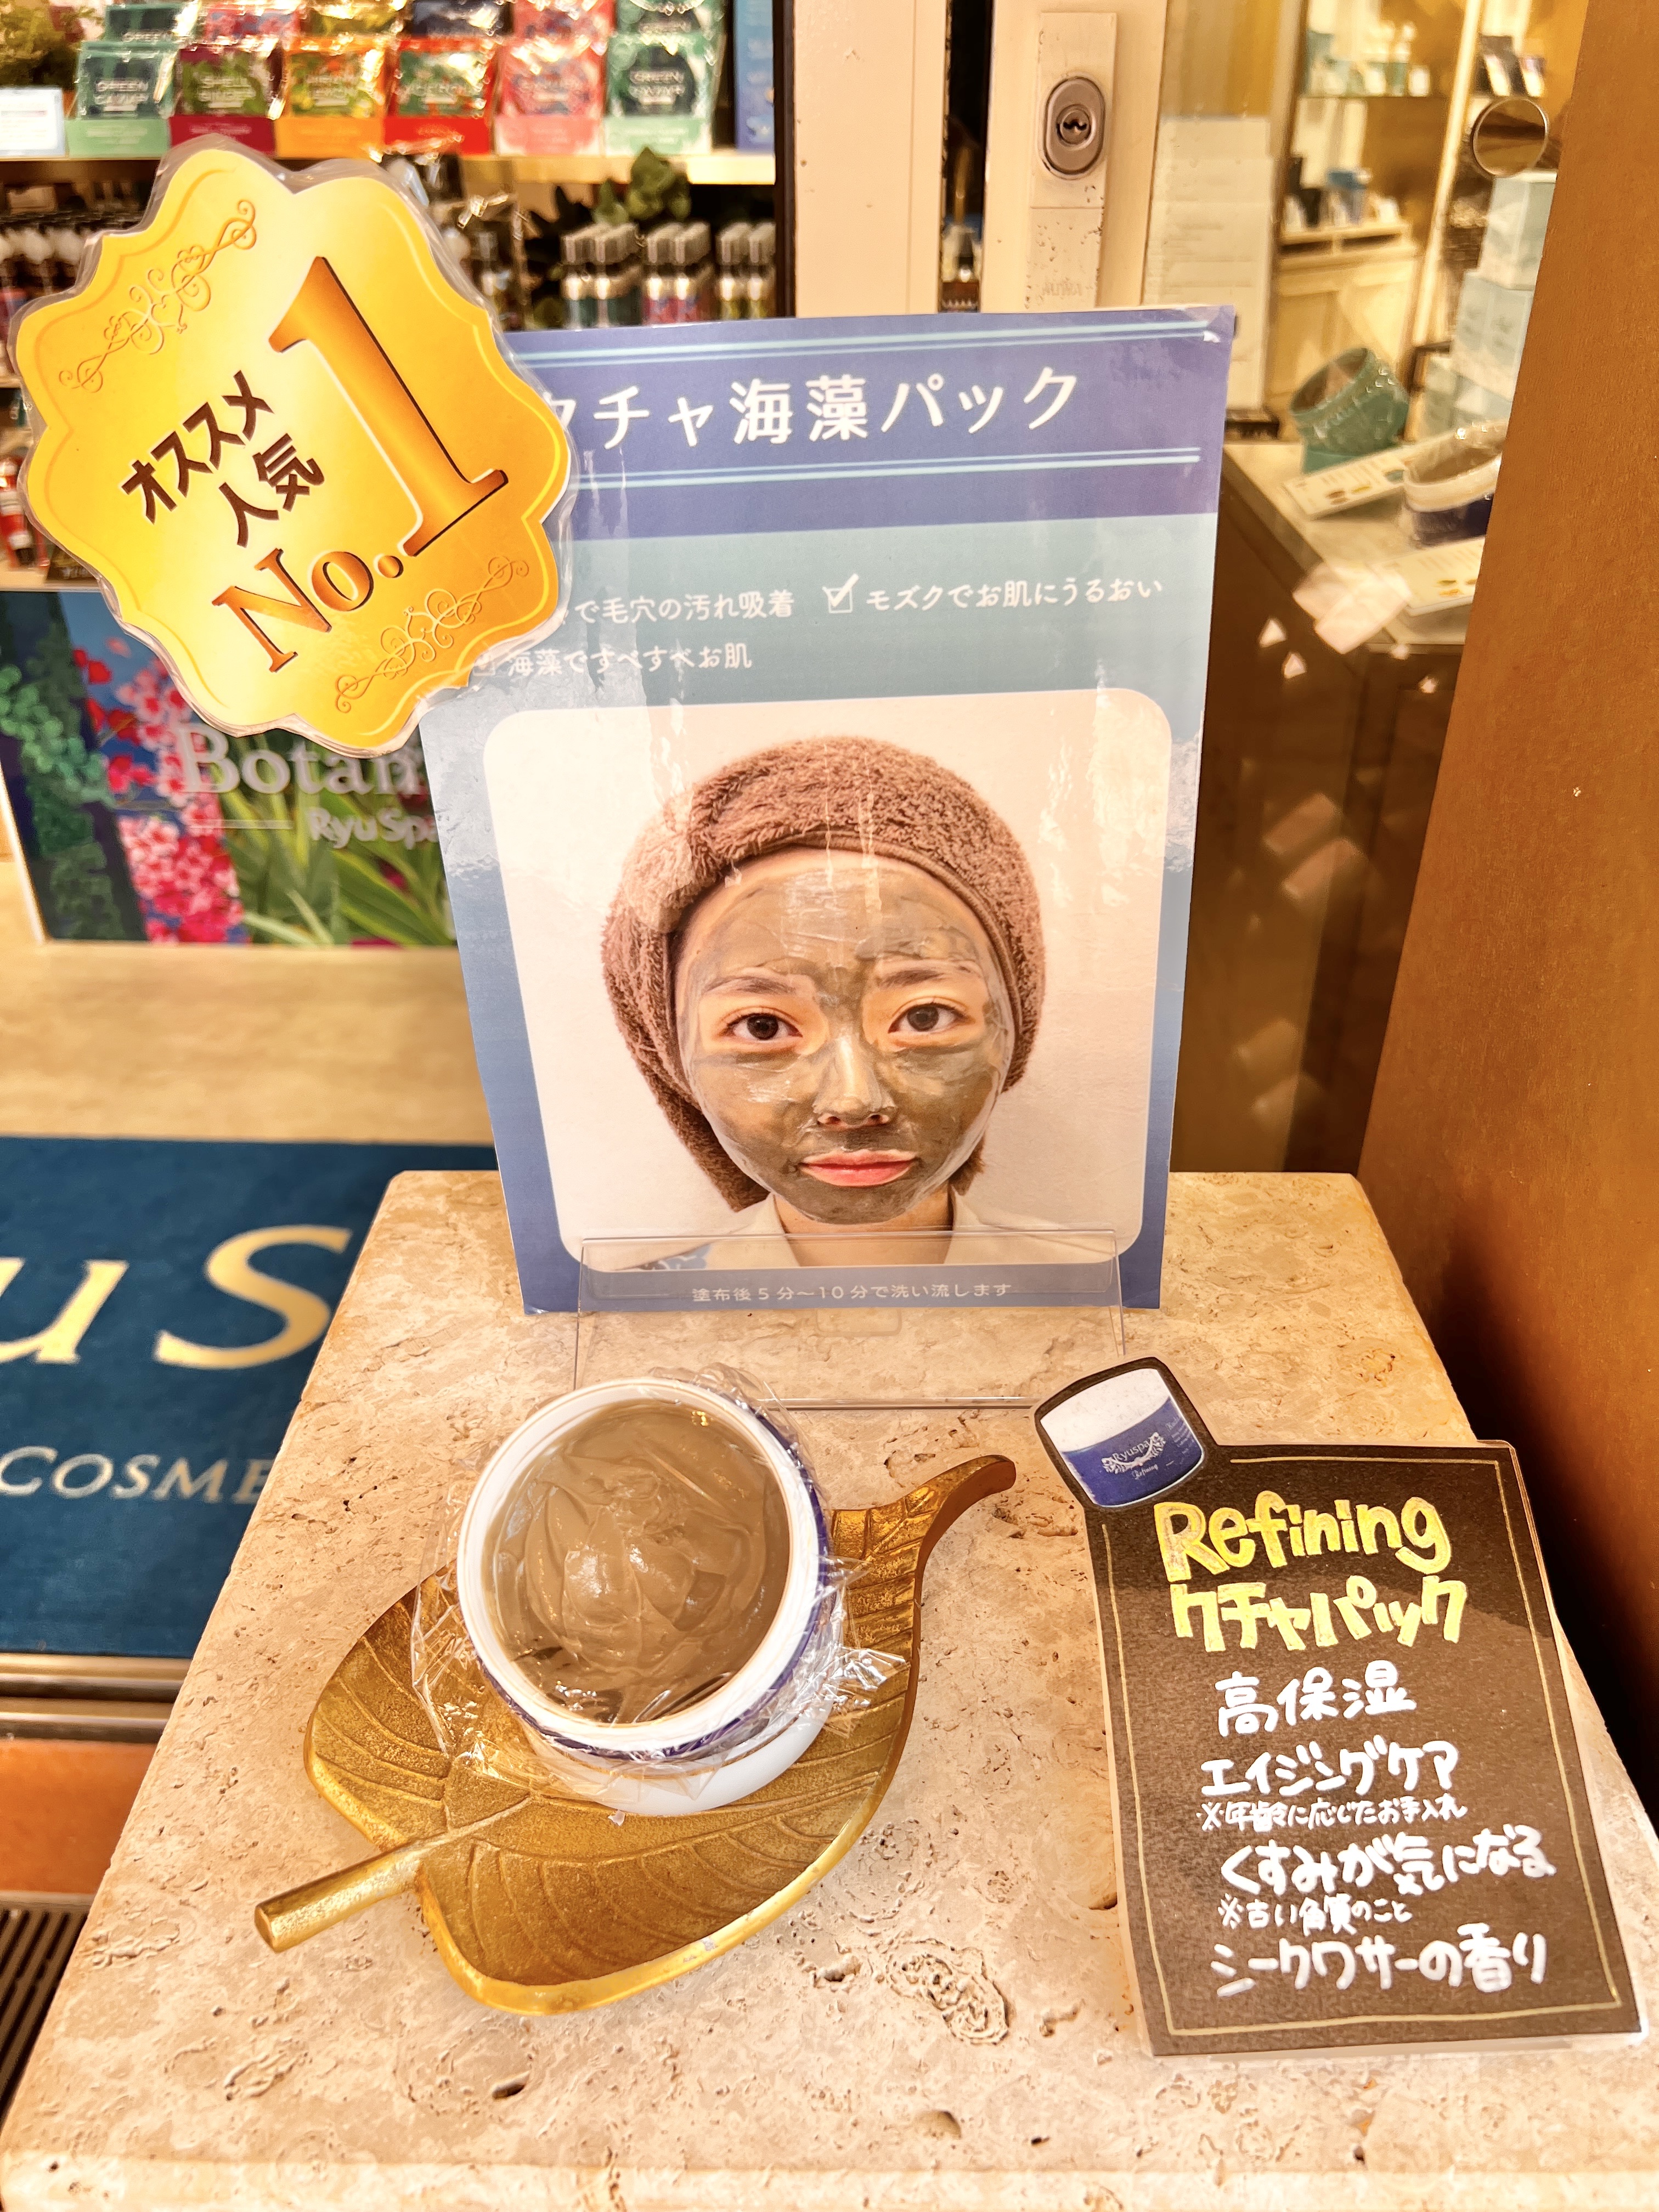 GREEN
オススメ
人気
No.1
クチャ海藻パック
で毛穴の汚れ吸着
モズクでお肌にうるおい
海藻ですべすべお肌
Botan
RyuSpa
塗布後5分〜10分で洗い流します
u S
COSME
Ryuspa
Refining
Refining
クチャパック
高保湿
エイジングケア
※年齢に応じたお手入れ
くすみが気になる
※古い角質のこと
シークワサーの香り